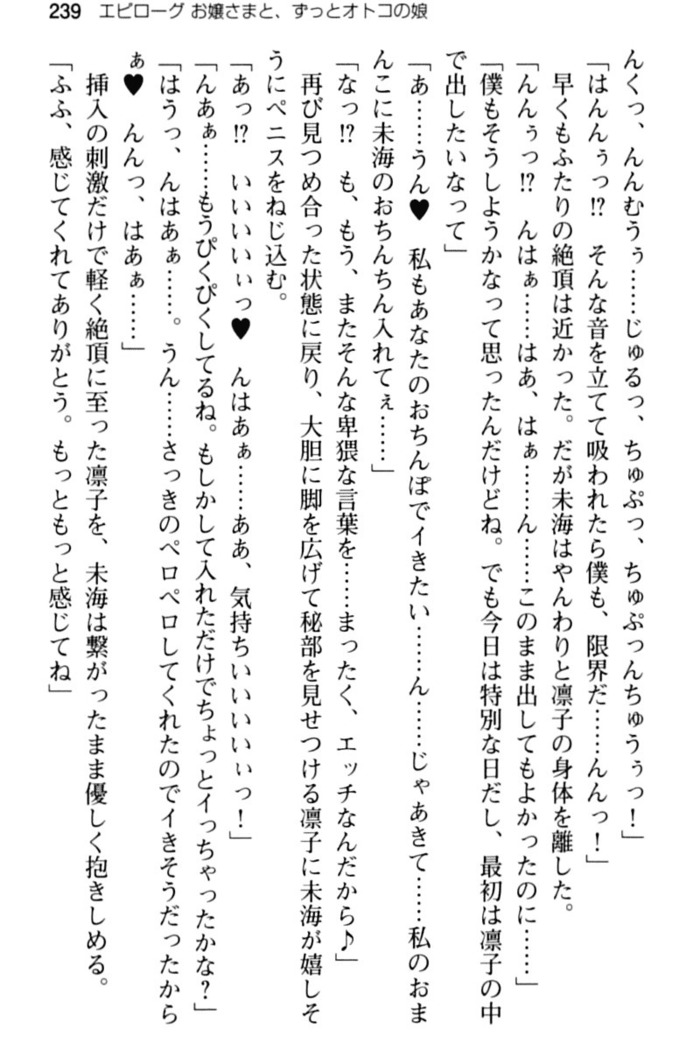 239 エピローグ お嬢さまと、ずっとオトコの娘
んくっ、んんむうぅ……じゅるっ、ちゅぷっ、ちゅぷっんちゅうぅっ！」
「はんんぅっ!? そんな音を立てて吸われたら僕も、限界だ……んんっ！」
早くもふたりの絶頂は近かった。だが未海はやんわりと凛子の身体を離した。
「んんぅっ!? んはぁ……はあ、はぁ……ん……このまま出してもよかったのに……」
「僕もそうしようかなって思ったんだけどね。でも今日は特別な日だし、最初は凛子の中
で出したいなって」
「あ……うん♥ 私もあなたのおちんぽでイきたい……ん……じゃあきて……私のおま
んこに未海のおちんちん入れてぇ……」
「なっ!? も、もう、またそんな卑猥な言葉を……まったく、エッチなんだから♪」
再び見つめ合った状態に戻り、大胆に脚を広げて秘部を見せつける凛子に未海が嬉しそ
うにペニスをねじ込む。
「あっ!? いいいいぃっ♥ んはあぁ……ああ、気持ちいいいいぃっ！」
「んあぁ……もうぴくぴくしてるね。もしかして入れただけでちょっとイっちゃったかな？」
「はうっ、んはあぁ……。うん……さっきのペロペロしてくれたのでイきそうだったから
ぁ♥ んんっ、はあぁ……」
挿入の刺激だけで軽く絶頂に至った凛子を、未海は繋がったまま優しく抱きしめる。
「ふふ、感じてくれてありがとう。もっともっと感じてね」